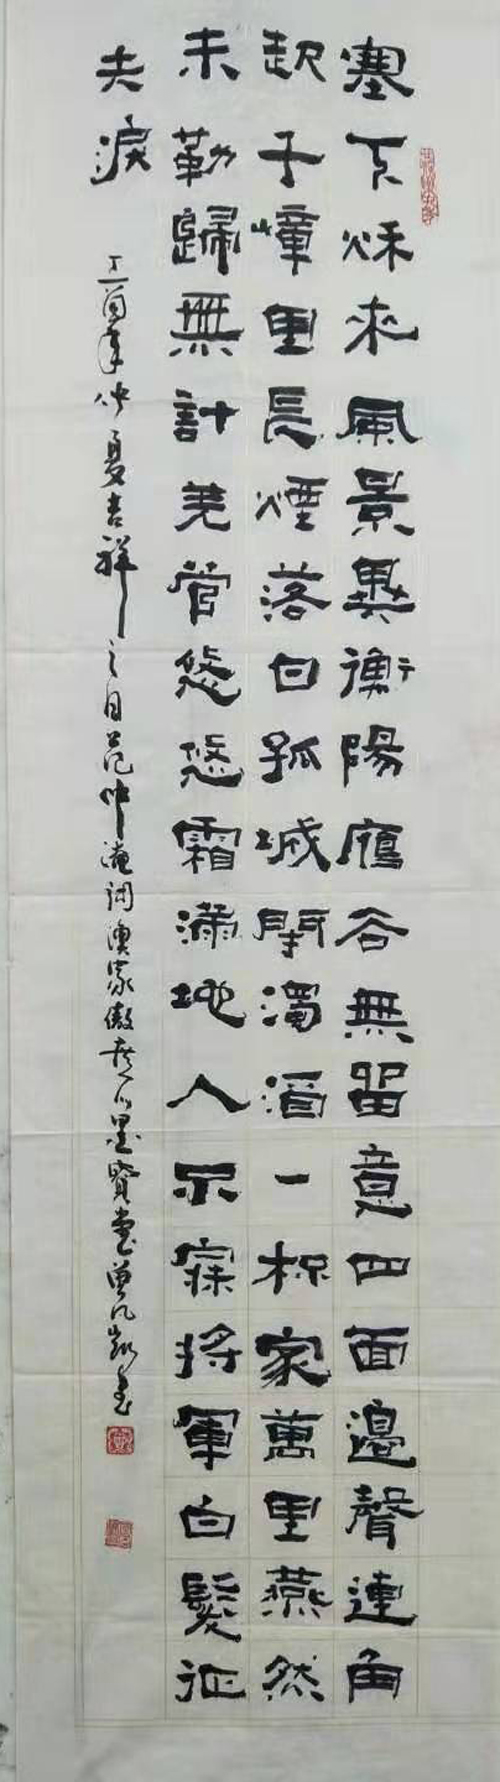 塞下秋来風景異衡陽鴈去無留意四面邊聲連角
起千嶂里長煙落日孤城閉濁酒一杯家萬里燕然
未勒歸無計羌管悠悠霜滿地人不寐將軍白髮征
夫淚
丁酉年仲夏吉祥之日范仲淹詞漁家傲墨寶堂曾凡凱書